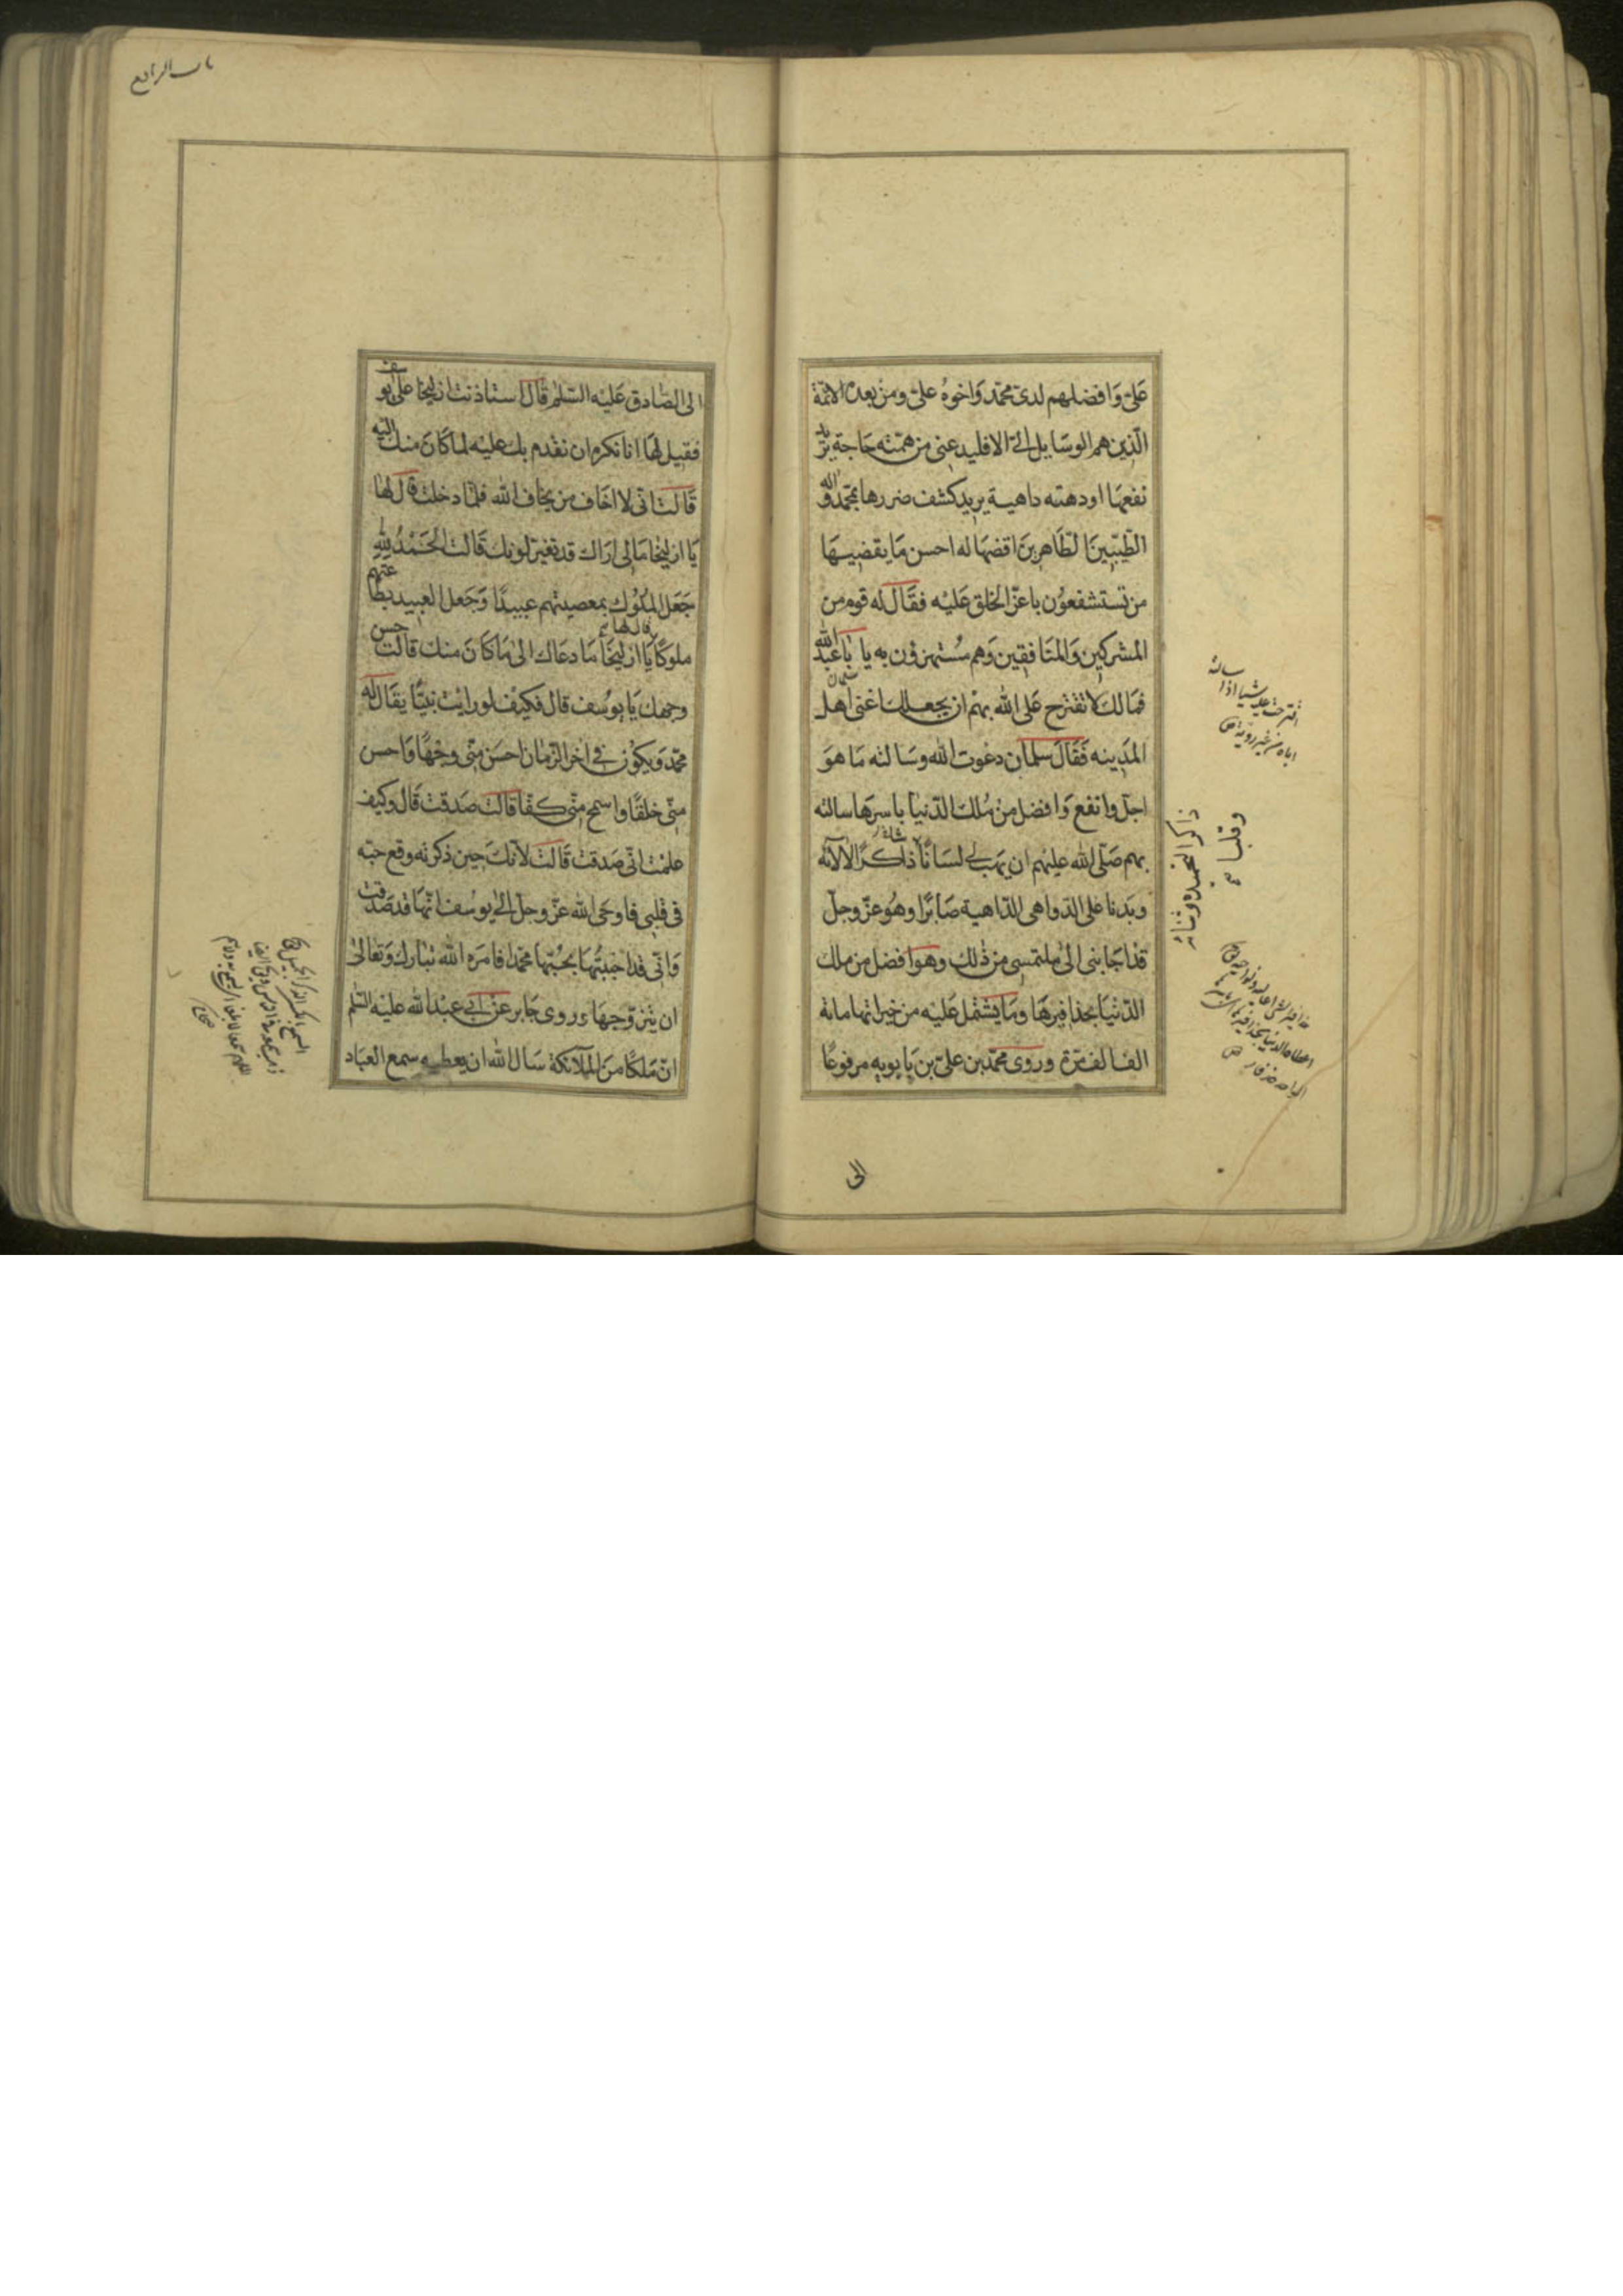 علىّ وَافضلهم لدى محمّد وَاخوهُ علىّ ومن بعده الائمّة
الّذين هم الوسَايل الىّ الا فليدعنى من همّته حَاجة يريد
نفعهَا او دهته داهية يريد كشف ضررها بمحمّد واله
الطّيّبين الطّاهرين اقضهَا له احسن مَا يقضيهَا
من تستشفعوُن باعزّ الخلق عَليْه فقَال له قوم من
المْشركين وَالمنَافقين وَهم مُسْتهزؤن به يا با عبد الله
فمَالك لا تقترح عَلى الله بهم ان يجعلك اغنى اهل
المَدينه فَقَالَ سلمان دعَوت الله وسَالته مَا هوَ
اجلّ وانفع وَافضل من مُلك الدّنيَا باسرهَا سالته
بهم صَلّى الله عليْهم ان يهب لى لسَانًا ذاكرًا لالآئه
وبَدنا على الدّواهى الدّاهية صَابرًا وهُو عزّ وجلّ
قدْ اجَابنى الىٰ ملتمسى من ذٰلك وهوَ افضل من ملك
الدّنْيَا بحذافيرهَا ومَا يشتمل عَليْه من خيراتها مائة
الف الف مَرّة وروى محمّد بن علىّ بن بَابويه مرفوعًا
ذاكرا لتحميده وثنائه
وقلبا
الى
باب الرابع
الى الصّادق عَليْه السّلم قَال استاذنت ازليخا علىٰ يوسف
فقيل لهَا انا نكره ان نقدم بك عليْه لمَا كَانَ منك اليْه
قَالت انّى لا اخَاف من يخاف الله فلمّا دخلت قَال لهَا
يَا ازليخا مَا لى ارَاك قد تغيّر لونك قَالت الحَمْدُ لِلّهِ
جَعَل الملُوك بمعصيتهم عبيدًا وَجَعل العبيد بطاعتهم
ملوكًا قال لها يَا ازليخَا مَا دعَاك الىٰ مَا كَانَ منك قالت حسن
وجهك يَا يوُسف قال فكيْف لو رايْت نبيًّا يقَال له
محمّد وَيكوُن فى اخر الزّمان احسَن منّى وجْهًا وَاحسن
منّى خلقًا واسمح منّى كفّا قالت صَدقت قَال وكيف
علمْت انّى صَدقت قَالت لانّكَ حين ذكرته وقع حبّه
فى قلبى فاوحَى الله عزّ وجلّ الىٰ يوسُف انّهَا قد صَدقت
وَانّى قدْ احْببْتُهَا بحُبّها محمّدا فامَره الله تبَارك وَتعَالىٰ
ان يتزوّجهَا وروى جَابر عنْ ابى عبْد الله عليْه السّلم
انّ مَلكًا منَ المَلآئكة سَال الله ان يعطيه سمع العبَاد